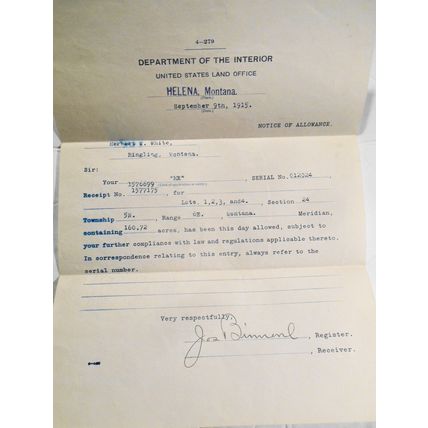 4—279
DEPARTMENT OF THE INTERIOR
UNITED STATES LAND OFFICE
HELENA, Montana.
(Place.)
September 9th, 1915.
(Date.)
NOTICE OF ALLOWANCE.
Herbert White,
Ringling, Montana.
Sir:
Your "HE", SERIAL No. 012024
1576699
Receipt No. 1577175, for
Lots. 1,2,3, and4. , Section 24
Township 5N. , Range 6E. , Montana. Meridian,
containing 160.72 acres, has been this day allowed, subject to
your further compliance with law and regulations applicable thereto.
In correspondence relating to this entry, always refer to the
serial number.
Very respectfully,
Jos , Register.
, Receiver.